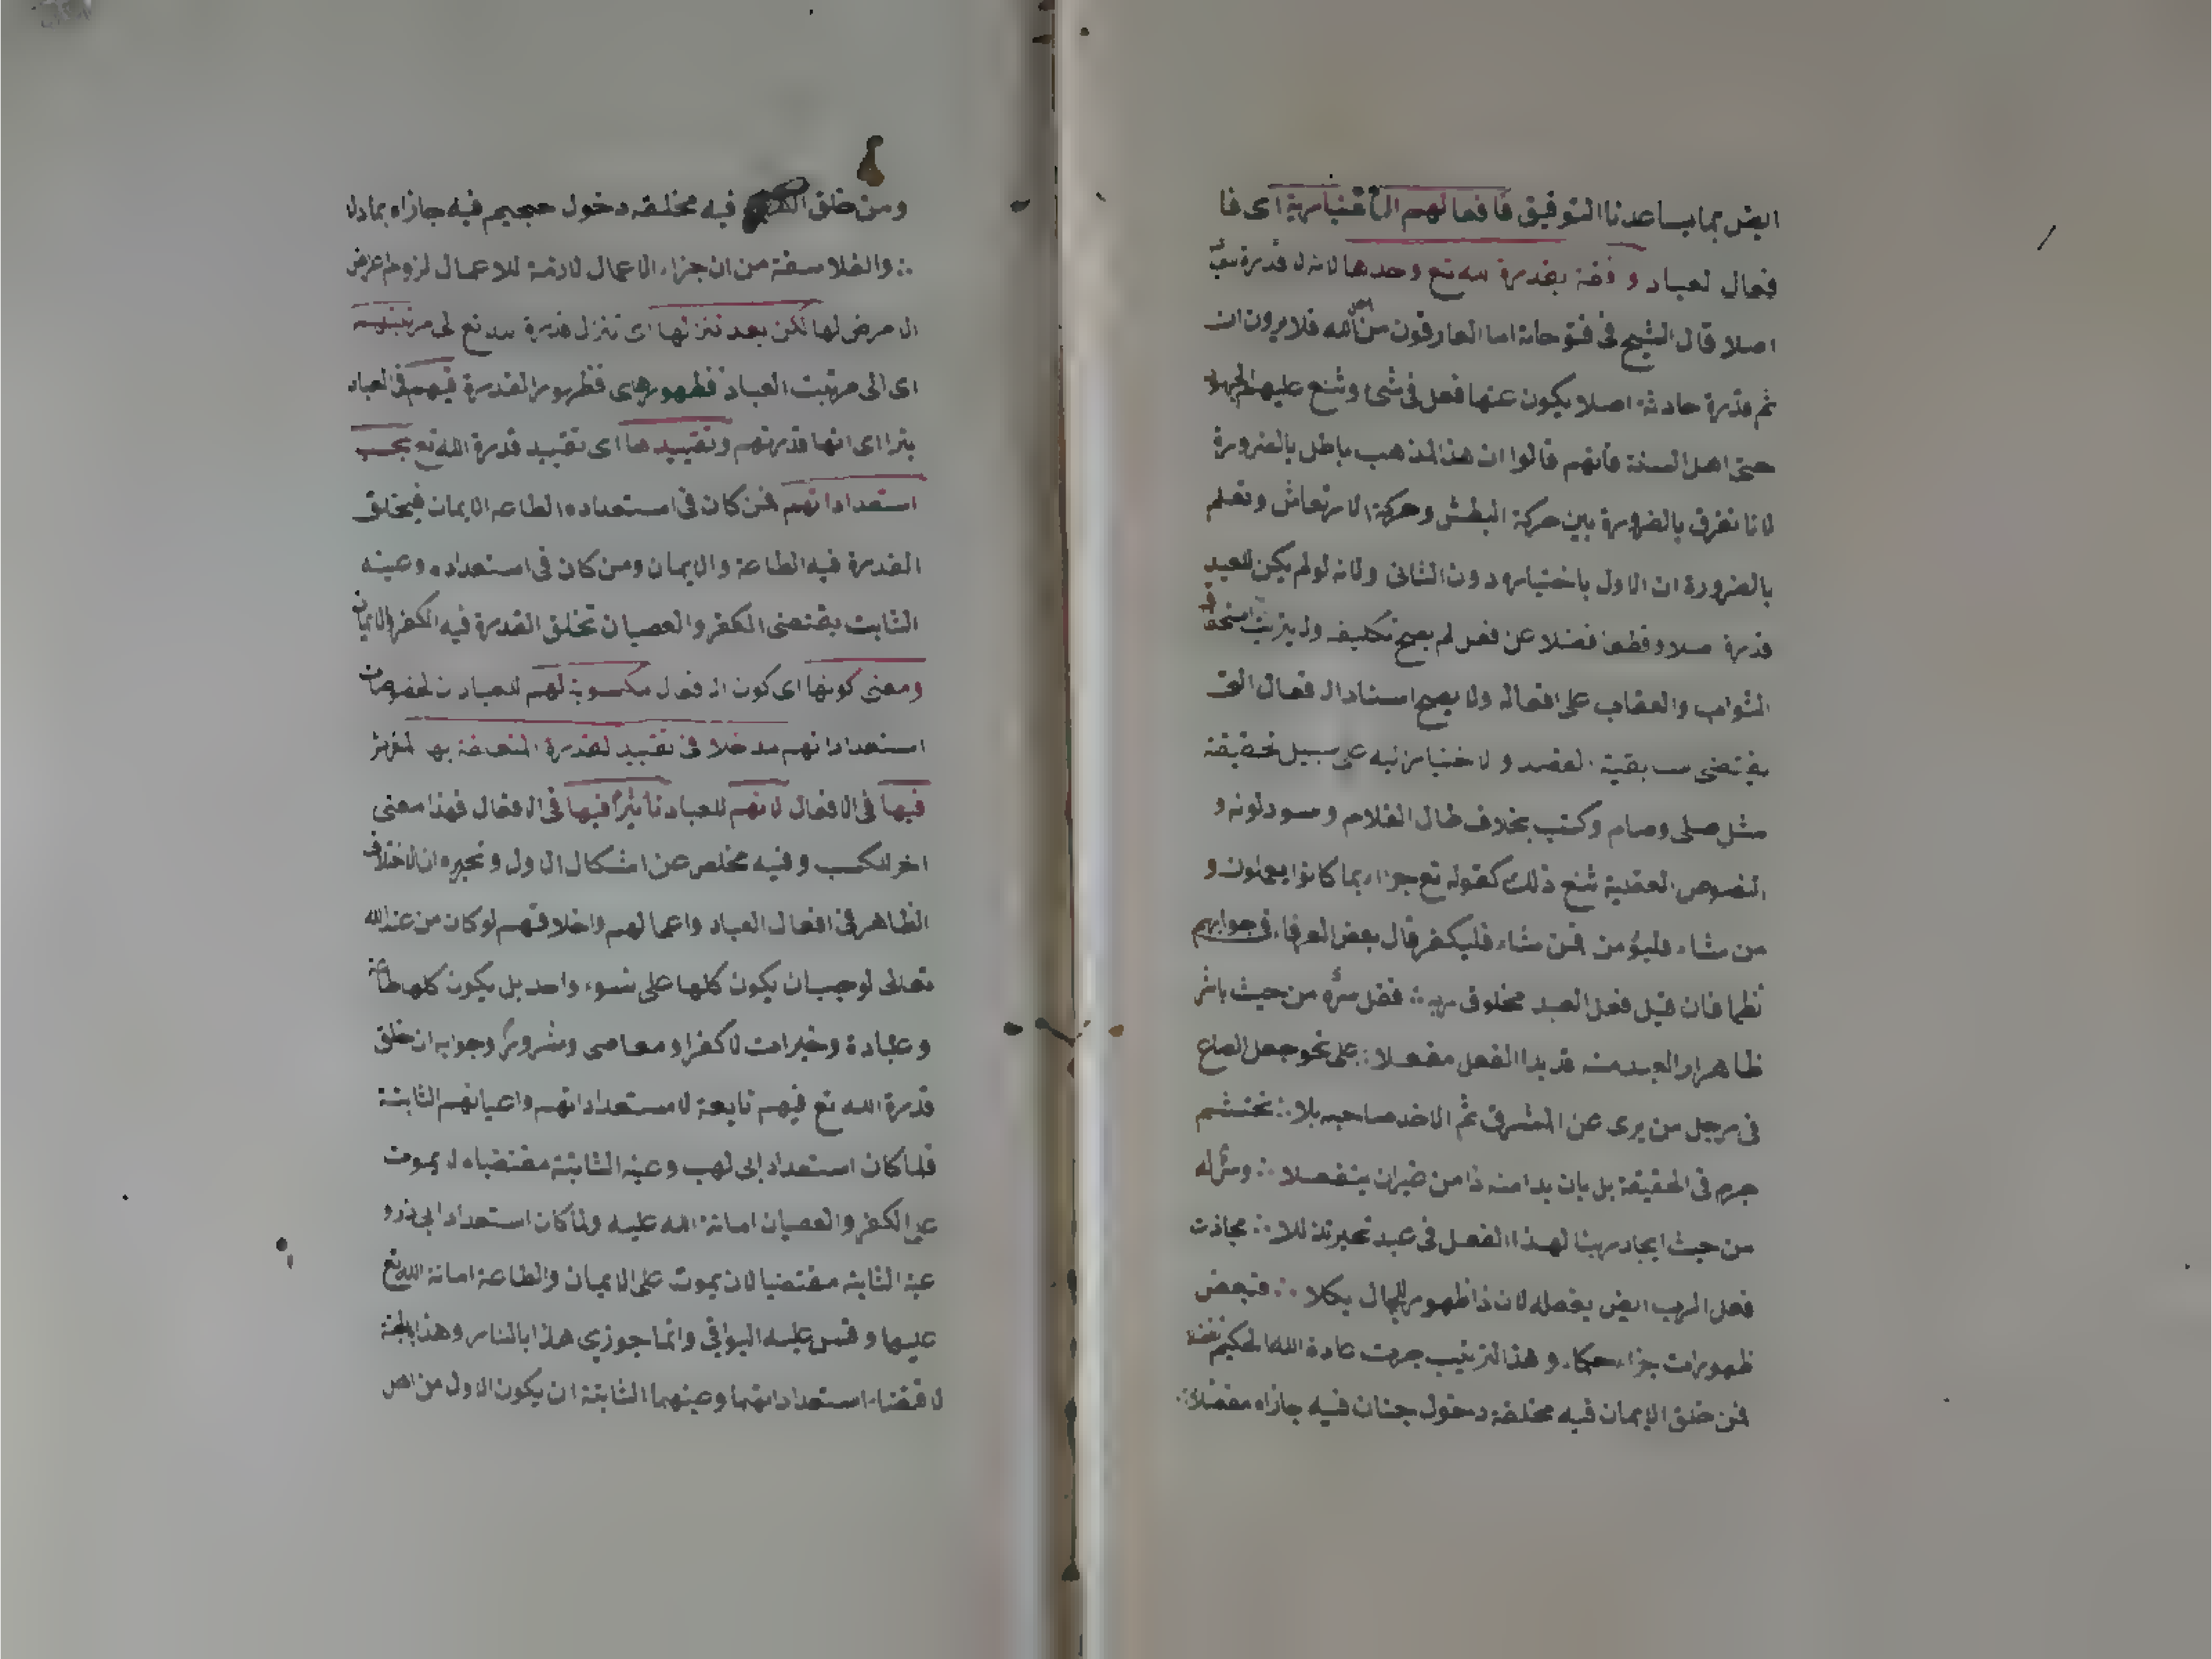 ايض بما يساعدنا التوفيق فافعالهم الاختيارية اى فا
فعال لعباد و قعة بقدرة لله تع وحدها لانه لا قدرة
اصلا قال الشيخ فى فتوحاته اما العارفون من اهل الله فلا يرون ان
ثم قدرة حادثة اصلا يكون عنها فعل فى شئ وشنع عليهم
حتى اهل السنة فانهم قالوا ان هذا المذهب باطل بالضرورة
لانا نفرق بالضرورة بين حركة البطش وحركة الارتعاش ونعلم
بالضرورة ان الاول باختياره دون الثانى ولانه لو لم يكن للعبد
قدرة صلا وقطعا فضلا عن فعل لم يصح تكليفه ولا يترتب استحقاق
الثواب والعقاب على افعاله ولا يصح اسناد الافعال التى
يقتضى سابقية القصد و لاختيار اليه على سبيل لحقيقة
مثل صلى وصام وكتب بخلاف طال الغلام وسود لونه و
النصوص لعقلية تمنع ذلك كقوله تع جزاء بما كانوا يعملون و
من شاء فليؤمن فمن شاء فليكفر قال بعض العرفاء فى جوابهم
نظما فان قيل فعل العبد مخلوق ربه ∴ فقل سره من حيث باشر
ظاهرا والعبد منه قد بدا الفعل مفعلا ∴ على نحو جعل الصاع
فى رحل من يرى عن السرق ثم الاخذ صاحبه بلا ∴
جرم فى الحقيقة بل بان بدا منه ذا من بنفصلا ∴
من حيث ايجاد ربنا لهذا الفعل فى عبد للا ∴ مجازت
فعل الرب ايض بفعله لان ذا ظهور بكلا ∴ فبعض
ظهورات جزاء حكما و هذا الترتيب جرت عادة الله الحكيم
فمن خلق الايمان فيه مخلقة دخول جنان فيه جازاه مفضلا ∴
ومن خلق الكفر فيه مخلقه دخول جحيم فيه جازاه بما دلا
∴ والفلاسفة من ان جزاء الاعمال لازمة للاعمال لزوم
المرض لها لكن بعد تنزلها اى تنزل قدرة لله تع لى مرتبتهم
اى الى مرتبت العباد فظهورها اى فظهور القدرة فيهم فى العباد
يترااى انها قدرتهم وتقييدها اى تقييد قدرة الله تع بحسب
استعداداتهم فمن كان فى استعداده الطاعه الايمان فيخلق
القدرة فيه الطاعة والايمان ومن كان فى استعداده وعينه
الثابت يقتضى الكفر والعصيان تخلق القدرة فيه الكفر
ومعنى كونها اى كون الافعال مكسوبة لهم للعباد ن لخصوصيات
استعداداتهم مدخلا فى تقييد لقدرة المتعلقة بها
فيها فى الافعال لا نهم للعباد تأثيرا فيها فى الافعال فهذا معنى
اخر للكسب وفيه مخلص عن اشكال الاول وتحيره ان الاختلاف
الظاهر فى افعال العباد واعمالهم واخلاقهم لو كان من عند الله
تعالى لوجب ان يكون كلها على سوء واحد بل يكون كلها طاعة
وعبادة وخيرات لا كفرا ومعاصى وشرورا وجوابه ان خلق
قدرة الله تع فيهم تابعة لاستعداداتهم واعيانهم الثابتة
فلما كان استعداد ابى لهب وعينه الثابتة مقتضيا لا يموت
على الكفر والعصيان اماته الله عليه ولما كان استعداد ابى ذر و
عينه الثابتة مقتضيا لان يموت على الايمان والطاعة اماته الله تع
عليها وقس عليه البواقى وانما جوزى هذا بالنار وهذا بالجنة
لاقتضاء استعداداتهما وعينهما الثابتة ان يكون الاول من اهل